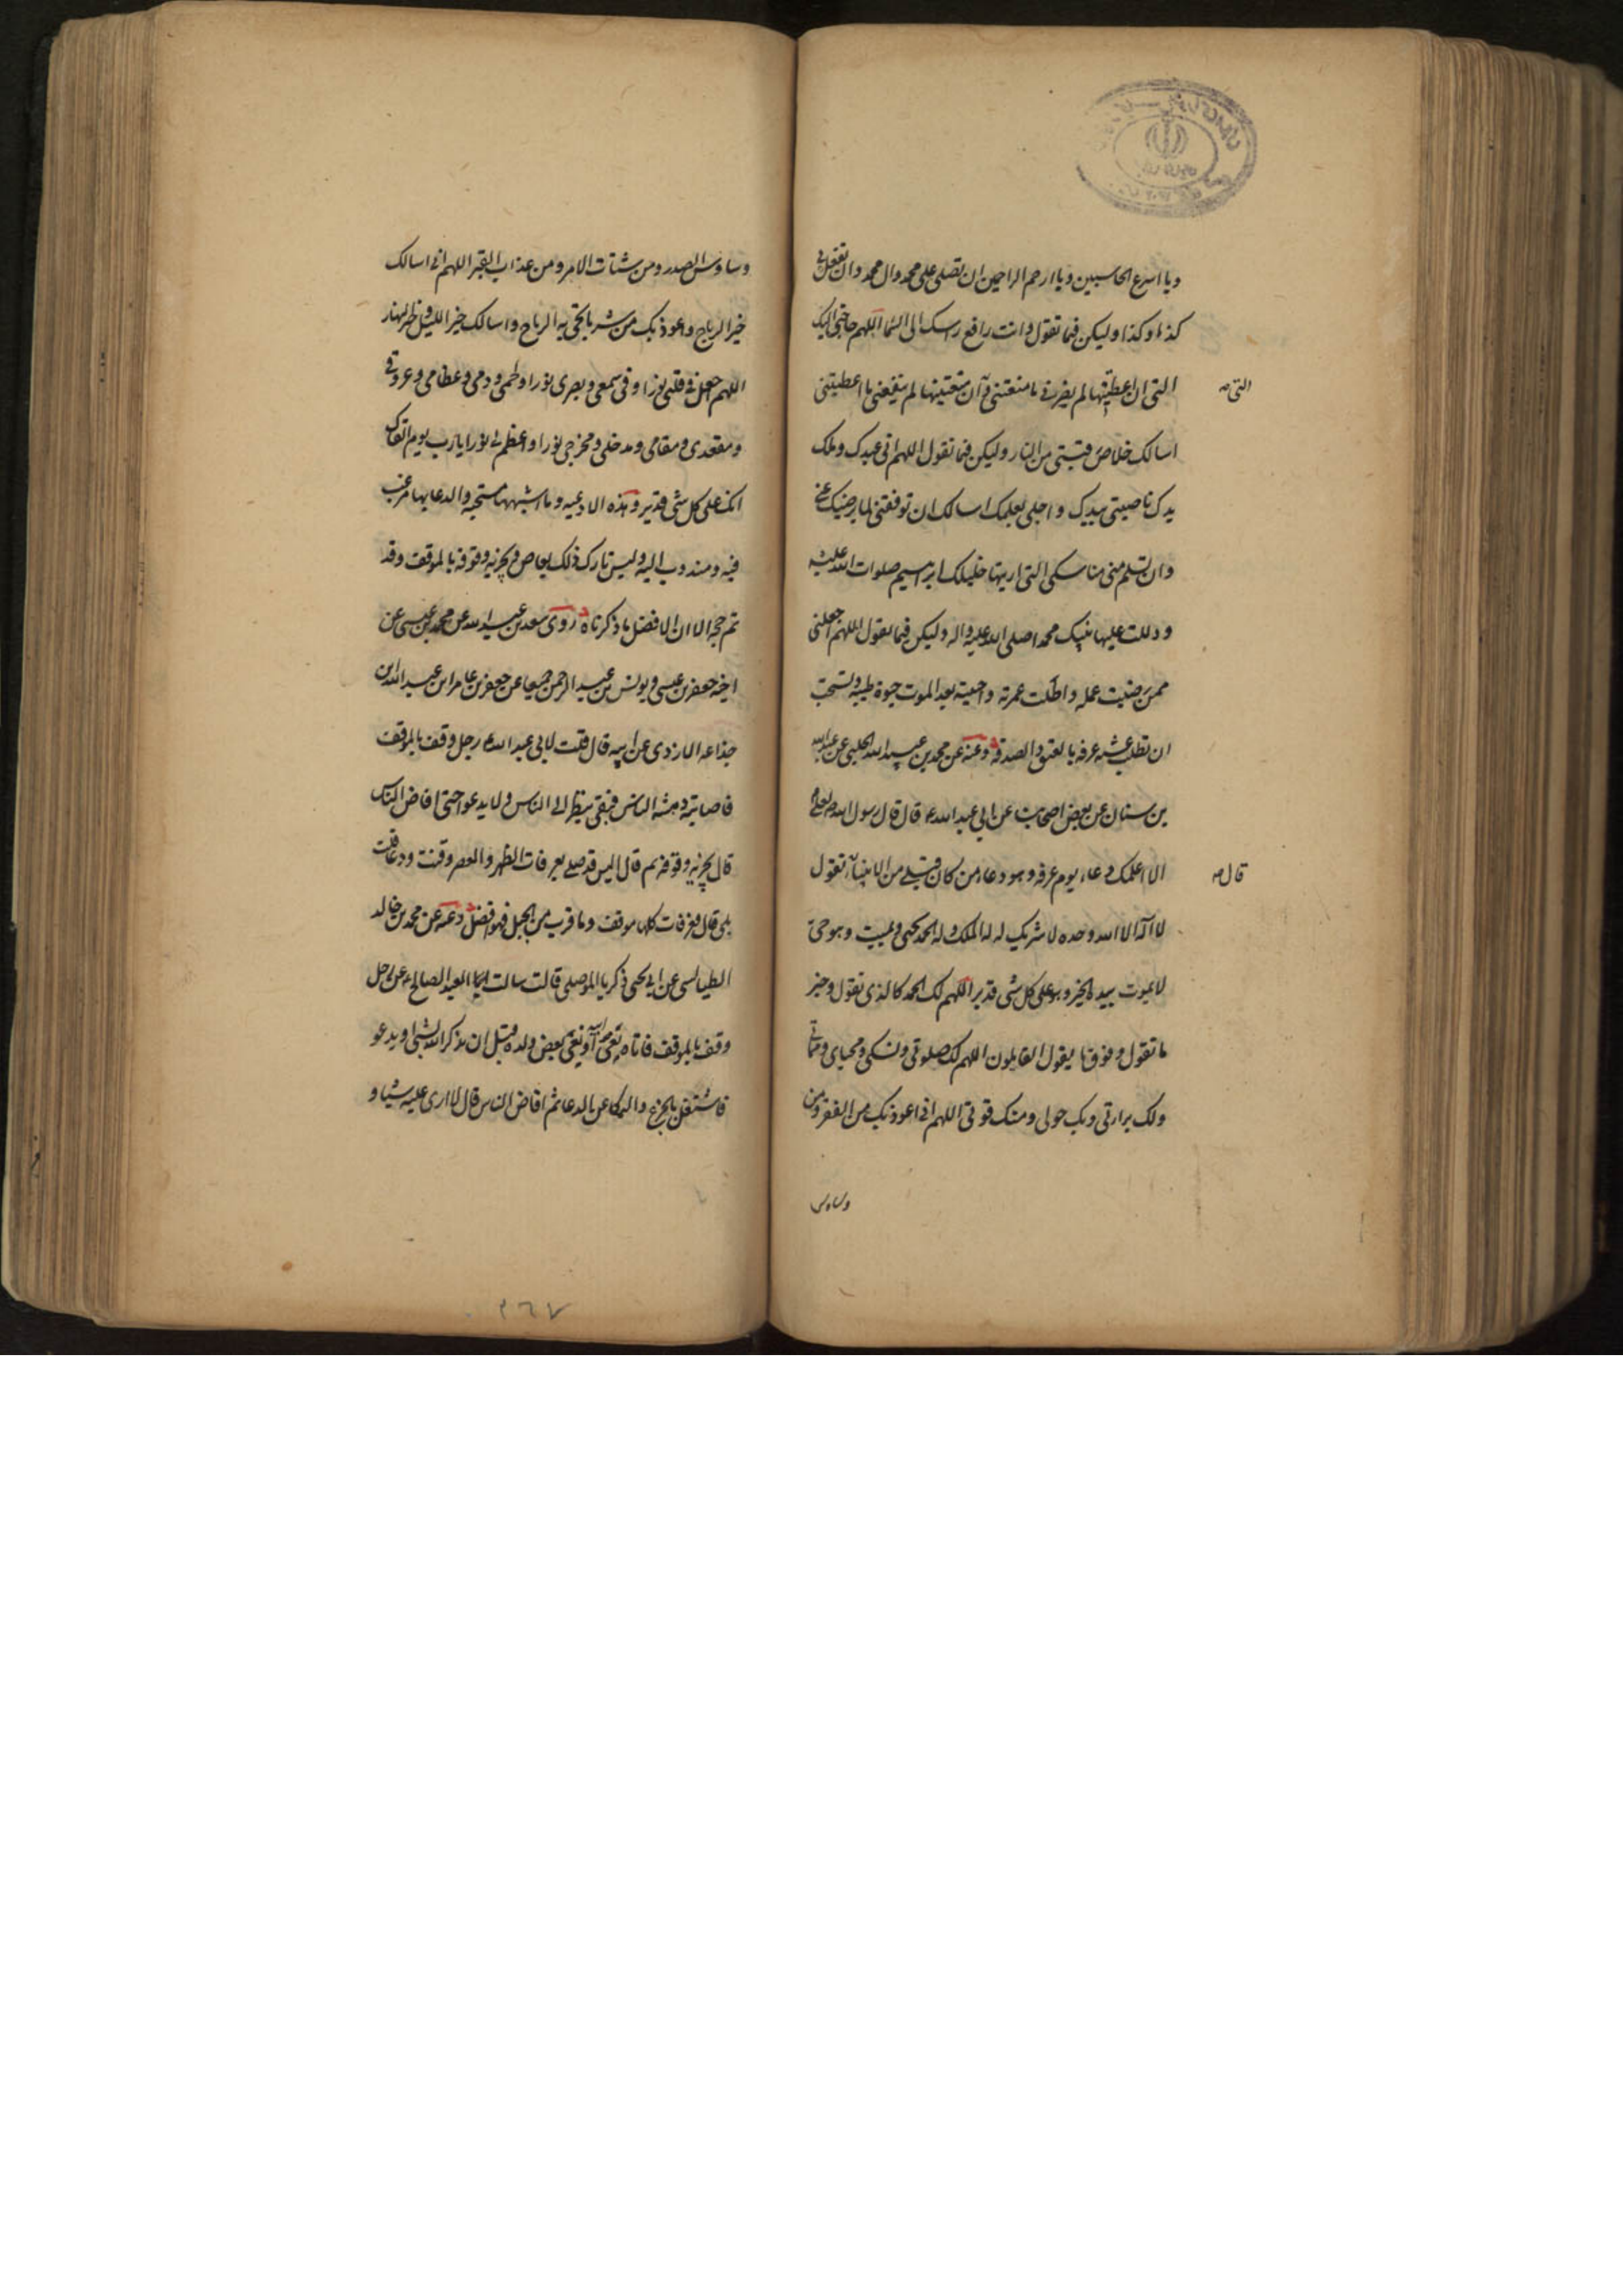 ويا اسرع الحاسبين ويا ارحم الراحمين ان تصلى على محمد وال محمد وان تفعل بى
كذا وكذا وليكن فيما تقول وانت رافع راسك الى السما اللهم حاجتى اليك
التى ان اعطيتنيها لم يضرنى ما منعتنى وان منعتنيها لم ينفعنى ما اعطيتنى
التى صح
اسالك خلاص رقبتى من النار وليكن فيما تقول اللهم انى عبدك وملك
يدك ناصيتى بيدك واجلى بعلمك اسالك ان توفقنى لما يرضيك عنى
وان تسلم منى مناسكى التى اريتها خليلك ابرهيم صلوات الله عليه
ودللت عليها نبيك محمدا صلى الله عليه واله وليكن فيما تقول اللهم اجعلنى
ممن رضيت عمله واطلت عمره واحييته بعد الموت حيوة طيبه ويستحب
ان تطلب عشيه عرفه بالعتق والصدقه وعنه عن محمد بن عبيد الله الحلبى عن عبد الله
بن سنان عن بعض اصحابنا عن ابى عبد الله ع قال قال رسول الله ص لعلى ع
الا اعلمك دعاء يوم عرفه وهو دعاء من كان قبلى من الانبياء تقول
قال صح
لا اله الا الله وحده لا شريك له له الملك وله الحمد يحيى ويميت وهو حى
لا يموت بيده الخير وهو على كل شى قدير اللهم لك الحمد كالذى تقول وخير
ما تقول وفوق ما يقول القايلون اللهم لك صلوتى ونسكى ومحياى ومماتى
ولك براءتى وبك حولى ومنك قوتى اللهم انى اعوذ بك من الفقر ومن
وساوس
وساوس الصدر ومن شتات الامر ومن عذاب القبر اللهم انى اسالك
خير الرياح واعوذ بك من شر ما يجئ به الرياح واسالك خير الليل وخير النهار
اللهم اجعل فى قلبى نورا وفى سمعى وبصرى نورا ولحمى ودمى وعظامى وعروقى
ومقعدى ومقامى ومدخلى ومخرجى نورا واعظم لى نورا يا رب يوم القاك
انك على كل شى قدير وهذه الادعيه وما اشبهها مستحبه والدعا بها مرغب
فيه ومندوب اليه وليس تارك ذلك بعاص ويجزيه وقوفه بالموقف وقد
تم حجه الا ان الافضل ما ذكرناه روى سعد بن عبد الله عن محمد بن عيسى عن
اخيه جعفر بن عيسى ويونس بن عبد الرحمن جميعا عن جعفر بن عامر ابن عبد الله بن
جذاعه الازدى عن ابيه قال قلت لابى عبد الله ع رجل وقف بالموقف
فاصابته دهشه الناس فبقى ينظر الى الناس ولا يدعو حتى افاض الناس
قال يجزيه وقوفه ثم قال اليس قد صلى بعرفات الظهر والعصر وقنت ودعا قلت
بلى قال فعرفات كلها موقف وما قرب من الجبل فهو افضل وعنه عن محمد بن خالد
الطيالسى عن ابى يحيى زكريا الموصلى قال سالت العبد الصالح ع عن رجل
وقف بالموقف فاتاه نعى ابيه او نعى بعض ولده قبل ان يذكر الله بشى او يدعو
فاشتغل بالجزع والبكا عن الدعا ثم افاض الناس قال لا ارى عليه شيئا و
٢٦٧